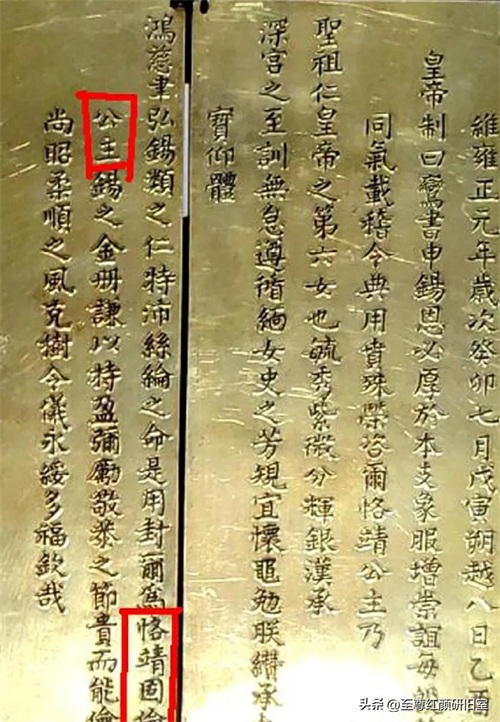 維雍正元年歲次癸卯七月戊寅朔越八日乙酉
皇帝制曰鸞書申錫恩必厚於本支象服增崇誼每
同氣載稽令典用賁殊榮咨爾恪靖公主乃
聖祖仁皇帝之第六女也毓秀紫微分輝銀漢承
深宮之至訓無怠遵循緬女史之芳規宜懷黽勉聯
寶仰體
鴻慈聿弘錫類之仁特沛絲綸之命是用封爾爲恪靖固倫
公主錫之金冊謙以持盈彌勵敬恭之節貴而能儉
尚昭柔順之風克樹令儀永綏多福欽哉
头条 @至尊红颜研旧室